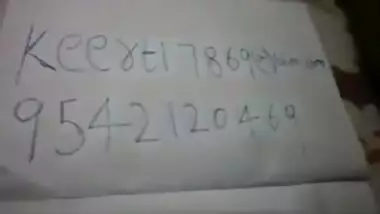 Keerti7869@
9542120469